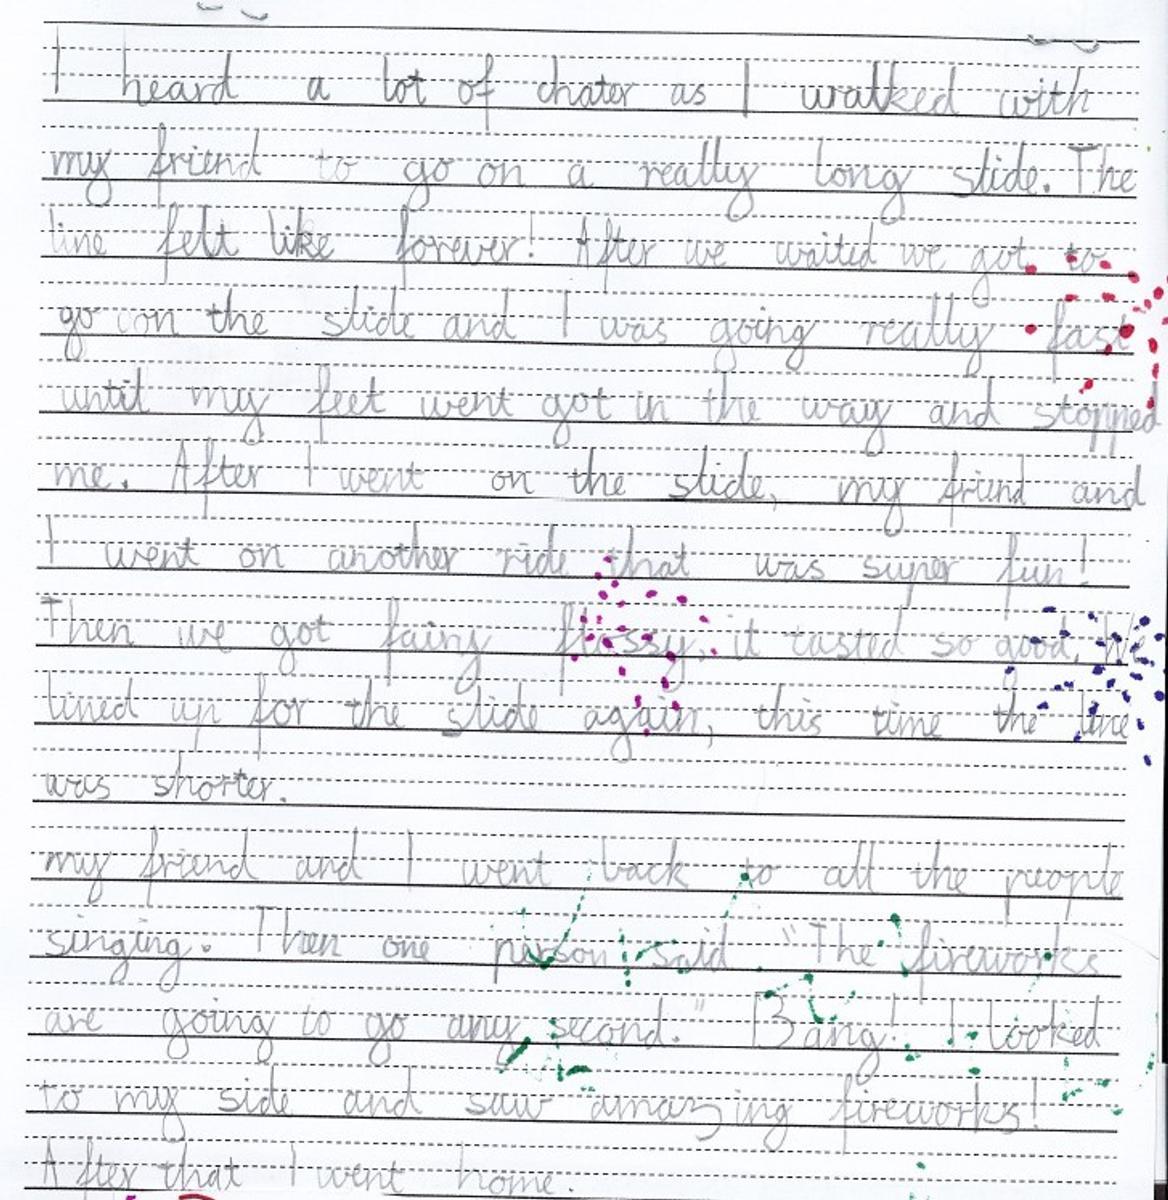 I heard a lot of chater as I walked with
my friend to go on a really long slide. The
line felt like forever! After we waited we got to
go on the slide and I was going really fast
until my feet went got in the way and stopped
me. After I went on the slide, my friend and
I went on another ride that was super fun!
Then we got fairy flossy, it tasted so good, We
lined up for the slide again, this time the line
was shorter.
my friend and I went back to all the people
singing. Then one person said "The fireworks
are going to go any second." Bang! I looked
to my side and saw amazing fireworks!
After that I went home.